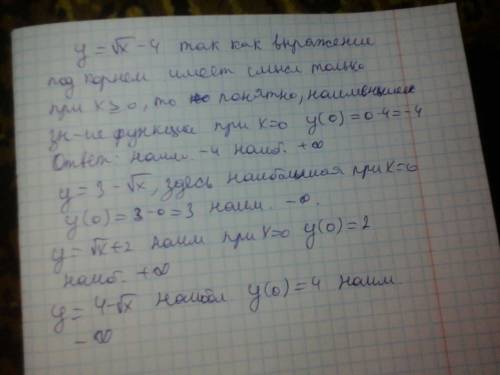 y = √x - 4 так как выражение
под корнем имеет смысл только
при x ≥ 0, то понятно, наименьшее
зн-ие функции при x=0 y(0)=0-4=-4
Ответ: наим. -4 наиб. +∞
y = 3 - √x, здесь наибольшая при x=0
y(0) = 3-0=3 наим. -∞.
y = √x+2 наим при x=0 y(0)=2
наиб. +∞
y = 4-√x наибол. y(0)=4 наим
-∞